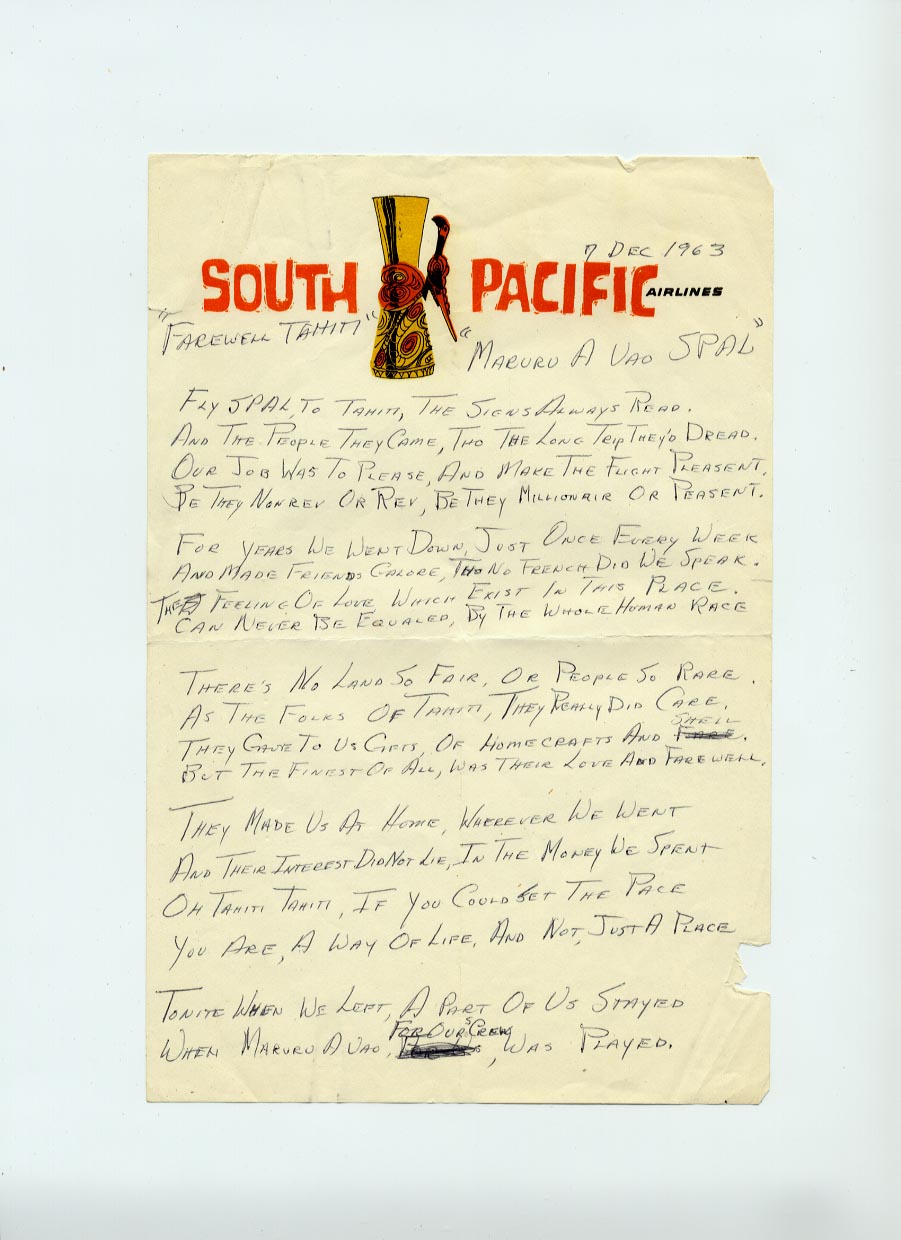 7 DEC 1963
SOUTH PACIFIC AIRLINES
"FAREWELL TAHITI" "MARURU A VAO SPAL"
FLY SPAL, TO TAHITI, THE SIGNS ALWAYS READ.
AND THE PEOPLE THEY CAME, THO THE LONG TRIP THEY'D DREAD.
OUR JOB WAS TO PLEASE, AND MAKE THE FLIGHT PLEASENT,
BE THEY NONREV OR REV, BE THEY MILLIONAIR OR PEASENT.
FOR YEARS WE WENT DOWN, JUST ONCE EVERY WEEK
AND MADE FRIENDS GALORE, THO NO FRENCH DID WE SPEAK.
THE FEELING OF LOVE, WHICH EXIST IN THIS PLACE.
CAN NEVER BE EQUALED, BY THE WHOLE HUMAN RACE
THERE'S NO LAND SO FAIR, OR PEOPLE SO RARE.
AS THE FOLKS OF TAHITI, THEY REALLY DID CARE.
THEY GAVE TO US GIFTS, OF HOMECRAFTS AND SHELL.
BUT THE FINEST OF ALL, WAS THEIR LOVE AND FAREWELL.
THEY MADE US AT HOME, WHEREVER WE WENT
AND THEIR INTEREST DID NOT LIE, IN THE MONEY WE SPENT
OH TAHITI TAHITI, IF YOU COULD SET THE PACE
YOU ARE, A WAY OF LIFE, AND NOT, JUST A PLACE
TONITE WHEN WE LEFT, A PART OF US STAYED
WHEN MARURU A VAO, FOR OUR CREWS, WAS PLAYED.